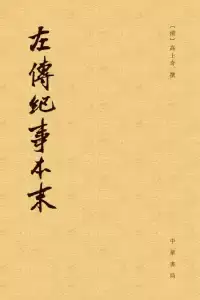 [清]高士奇 撰
左傳紀事本末
中華書局